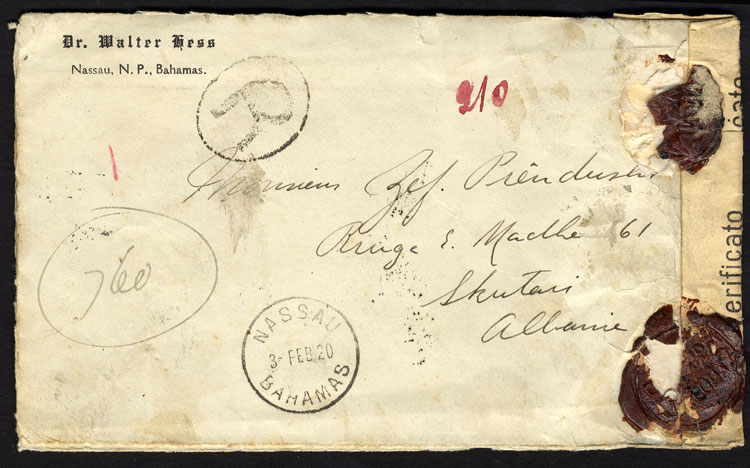 Dr. Walter Hess
Nassau, N. P., Bahamas.
R
210
Monsieur Zef. Prëndushi
Rruga e. Madhe 61
Skutari
Albanie
760
NASSAU
3- FEB 20
BAHAMAS
erificato
icato